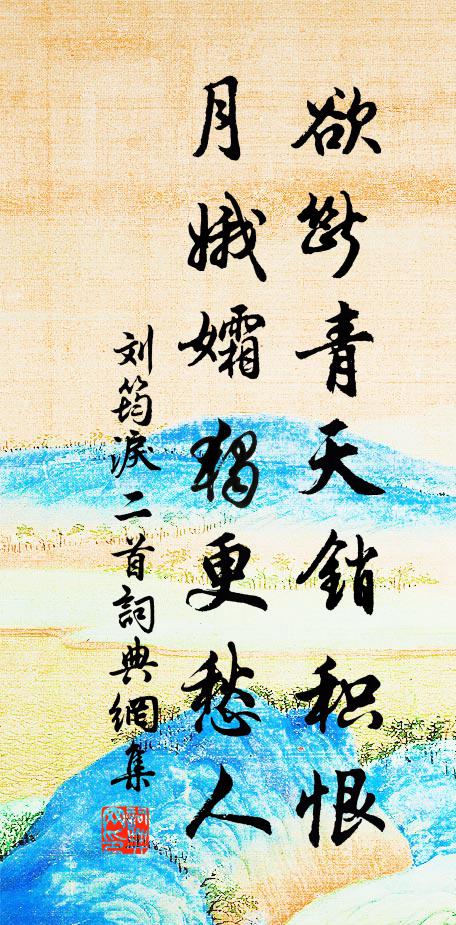 欲斷青天銷积恨
月娥孀獨更愁人
刘筠淚二首詞典網集